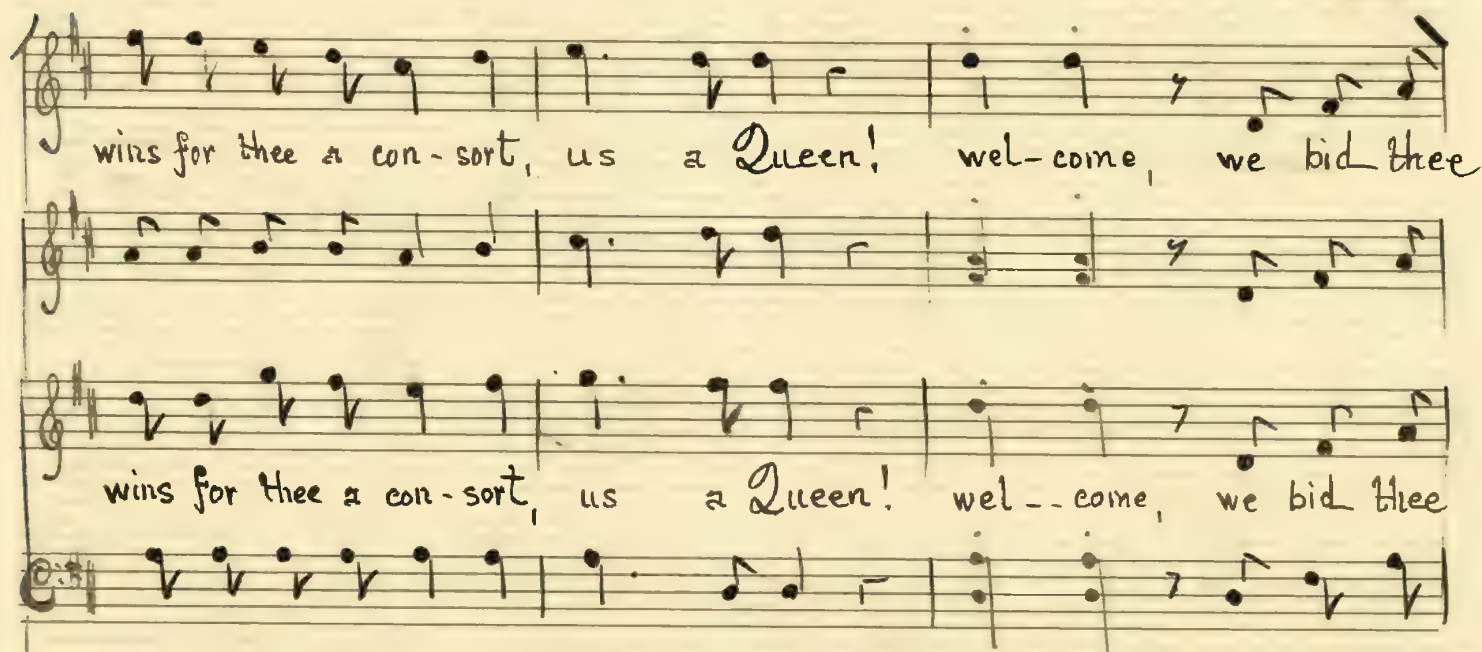 wins for thee a con-sort, us a Queen! wel-come, we bid thee
wins for thee a con-sort, us a Queen! wel--come, we bid thee